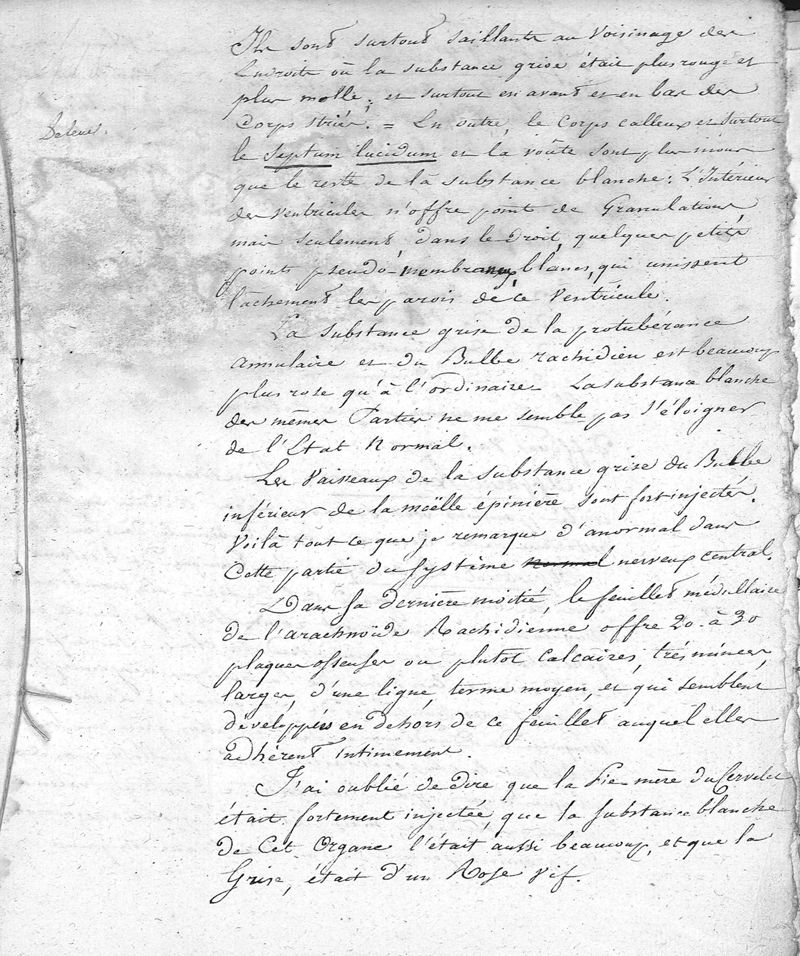 Ils sont surtout saillants au voisinage des
Endroits où la substance grise était plus rouge et
plus molle; et surtout en avant et en bas des
Corps striés. = En outre, le Corps calleux et surtout
le Septum lucidum et la voûte sont plus mous
que le reste de la substance blanche: L'Intérieur
des ventricules n'offre point de Granulations
mais seulement, dans le Droit, quelques petits
points pseudo-membraneux, blancs, qui unissent
lâchement les parois de ce Ventricule.
La Substance grise de la protubérance
annulaire et du Bulbe rachidien est beaucoup
plus rose qu'à l'ordinaire La substance blanche
des mêmes Parties ne me semble pas s'éloigner
de l'Etat Normal.
Les Vaisseaux de la substance grise du Bulbe
inférieur de la moëlle épinière sont fort injectés.
Voilà tout ce que je remarque d'anormal dans
Cette partie du Système normal nerveux central.
Dans sa dernière moitié, le feuillet médullaire
de l'arachnoïde Rachidienne offre 20 à 30
plaques osseuses ou plutot calcaires, très minces,
larges d'une ligne, terme moyen, et qui semblent
développées en dehors de ce feuillet auquel elles
adhérent intimement.
J'ai oublié de dire que la Pie mère du Cervelet
était fortement injectée, que la substance blanche
de Cet Organe l'était aussi beaucoup, et que la
Grise, était d'un Rose vif.